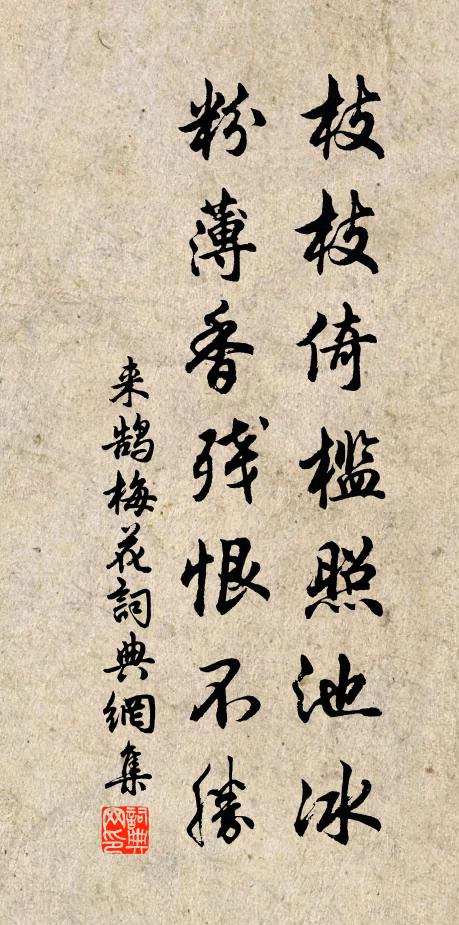 枝枝倚槛照池冰
粉薄香残恨不勝
来鹄梅花詞典網集
詞典网印